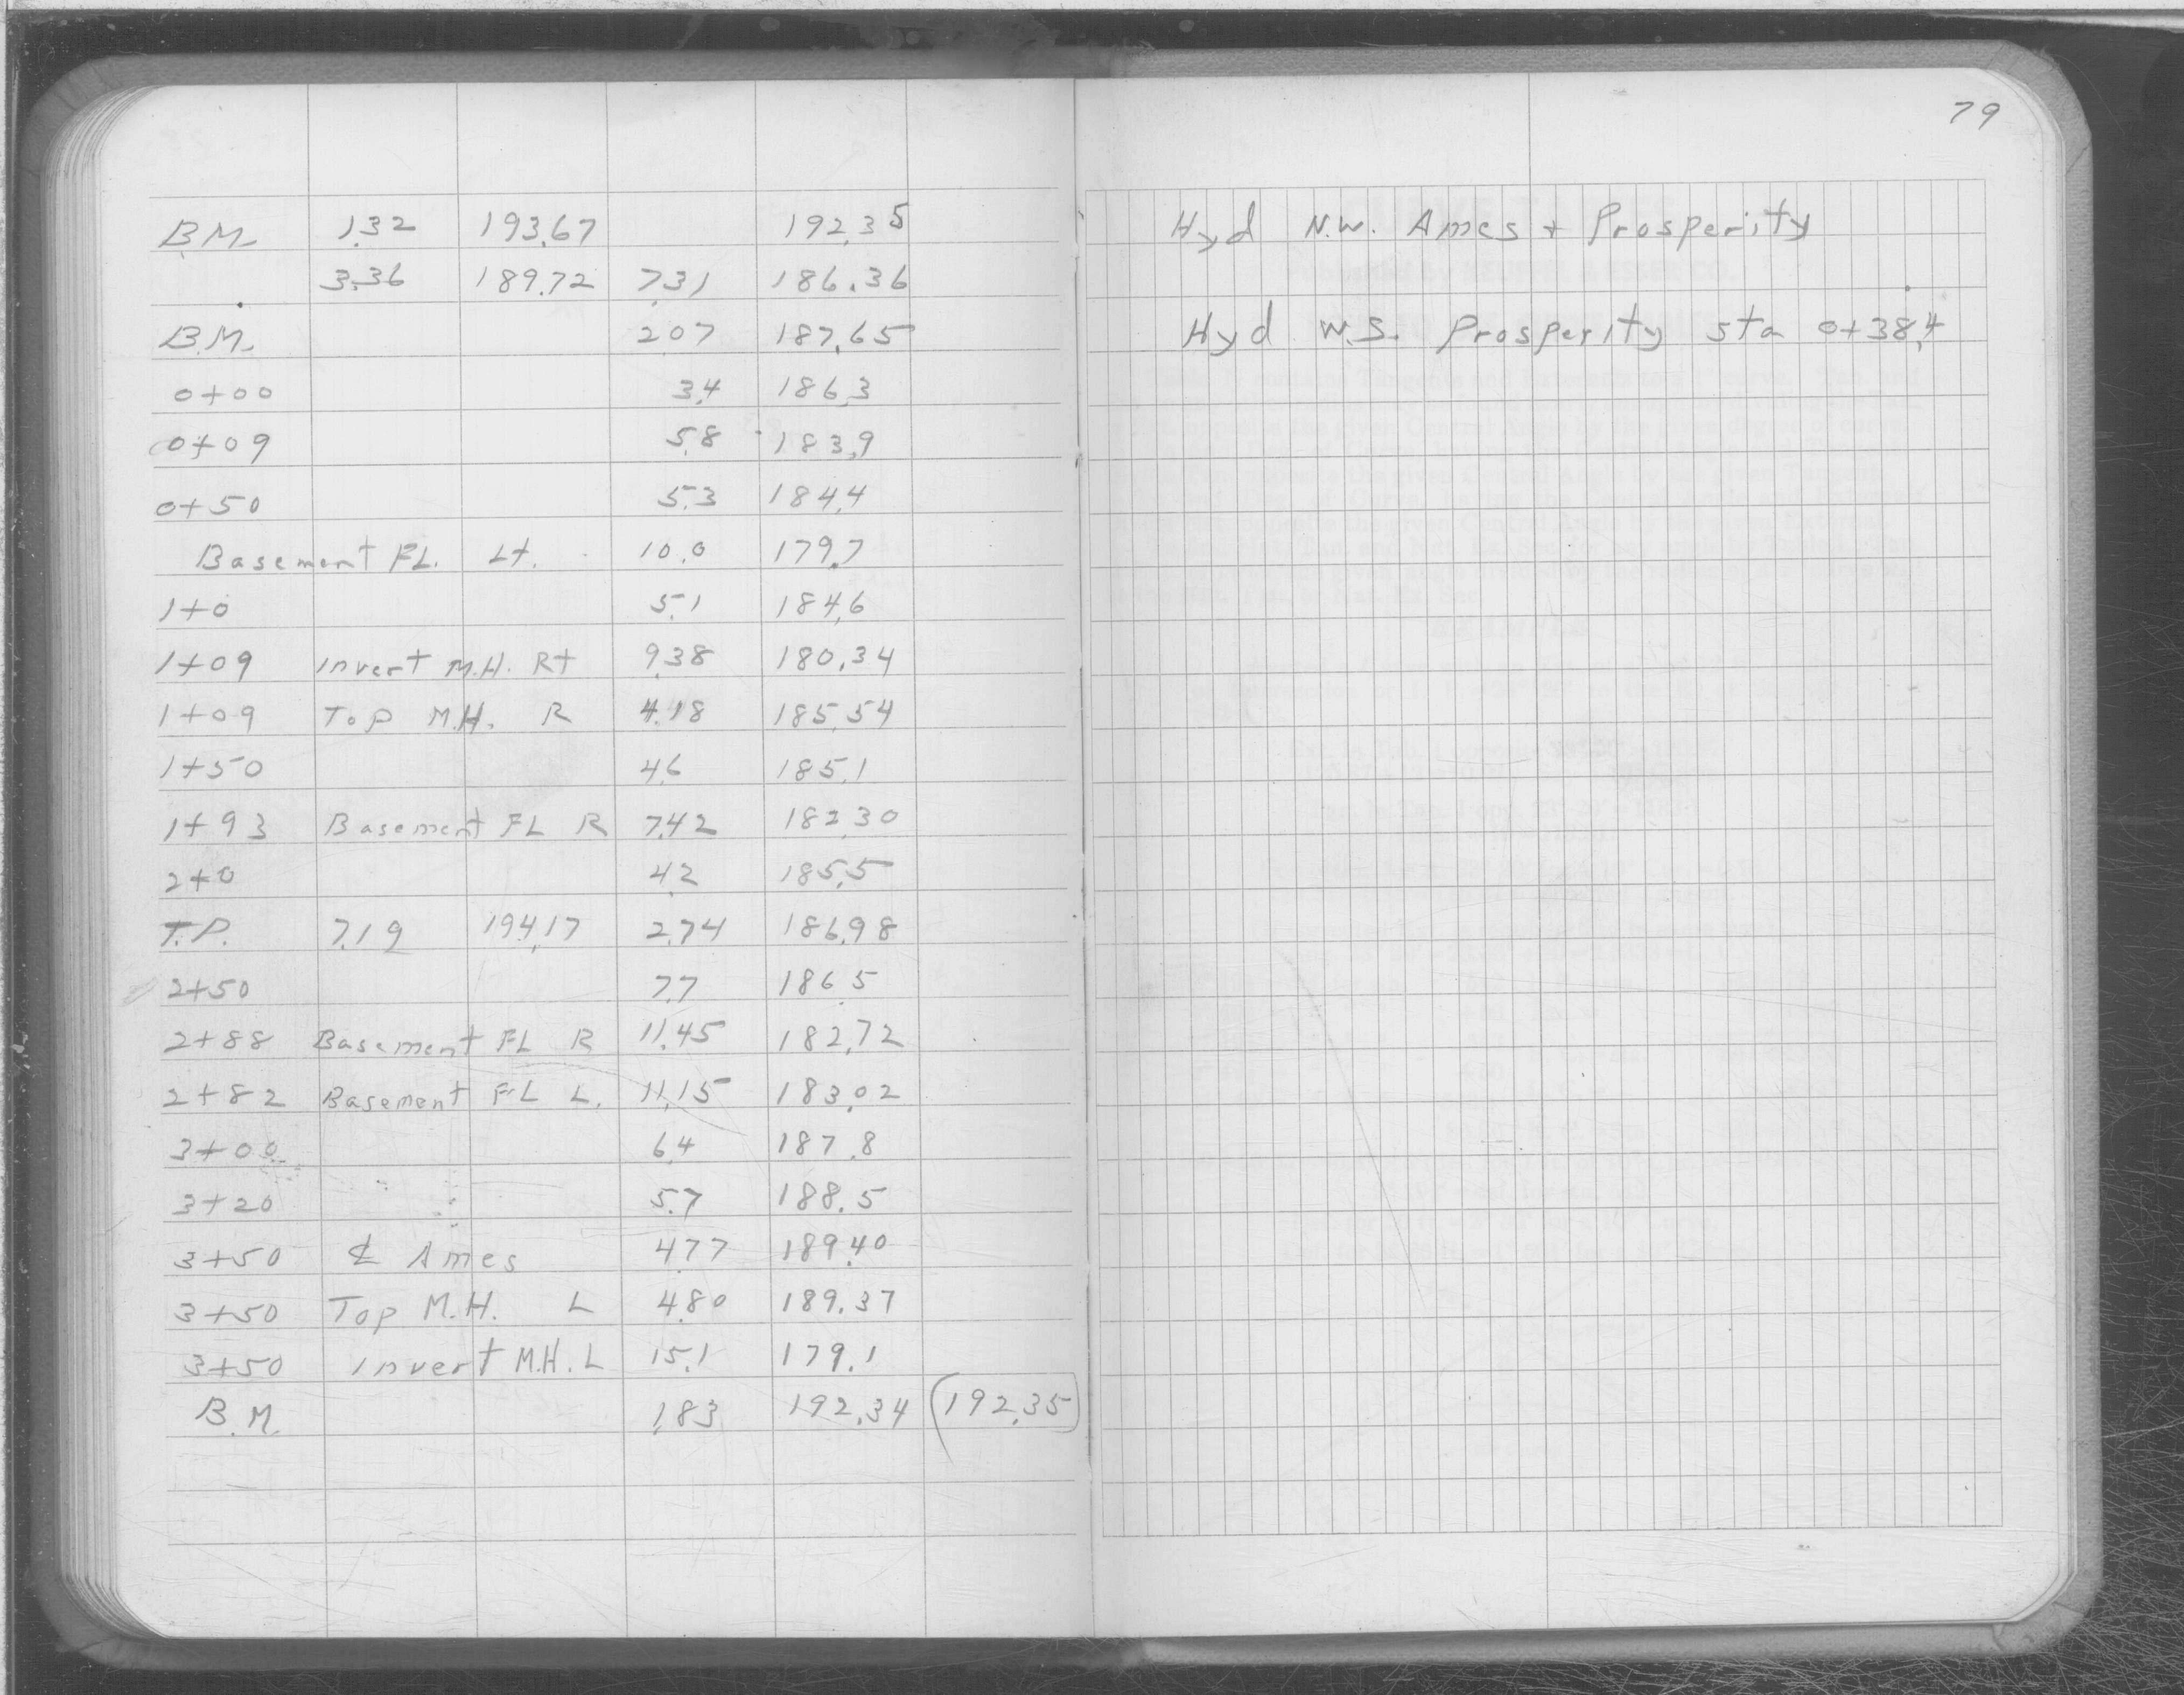 79
B.M. 1.32 193.67 192.35 Hyd N.W. Ames + Prosperity
3.36 189.72 7.31 186.36
B.M. 2.07 187.65 Hyd W.S. Prosperity sta 0+38.4
0+00 3.4 186.3
0+09 5.8 183.9
0+50 5.3 184.4
Basement FL. Lt. 10.0 179.7
1+0 5.1 184.6
1+09 Invert M.H. Rt 9.38 180.34
1+09 Top M.H. R 4.18 185.54
1+50 4.6 185.1
1+93 Basement FL R 7.42 182.30
2+0 4.2 185.5
T.P. 7.19 194.17 2.74 186.98
2+50 7.7 186.5
2+88 Basement FL R 11.45 182.72
2+82 Basement FL L. 11.15 183.02
3+00 6.4 187.8
3+20 5.7 188.5
3+50 ℄ Ames 4.77 189.40
3+50 Top M.H. L 4.80 189.37
3+50 Invert M.H. L 15.1 179.1
B.M. 1.83 192.34 (192.35)